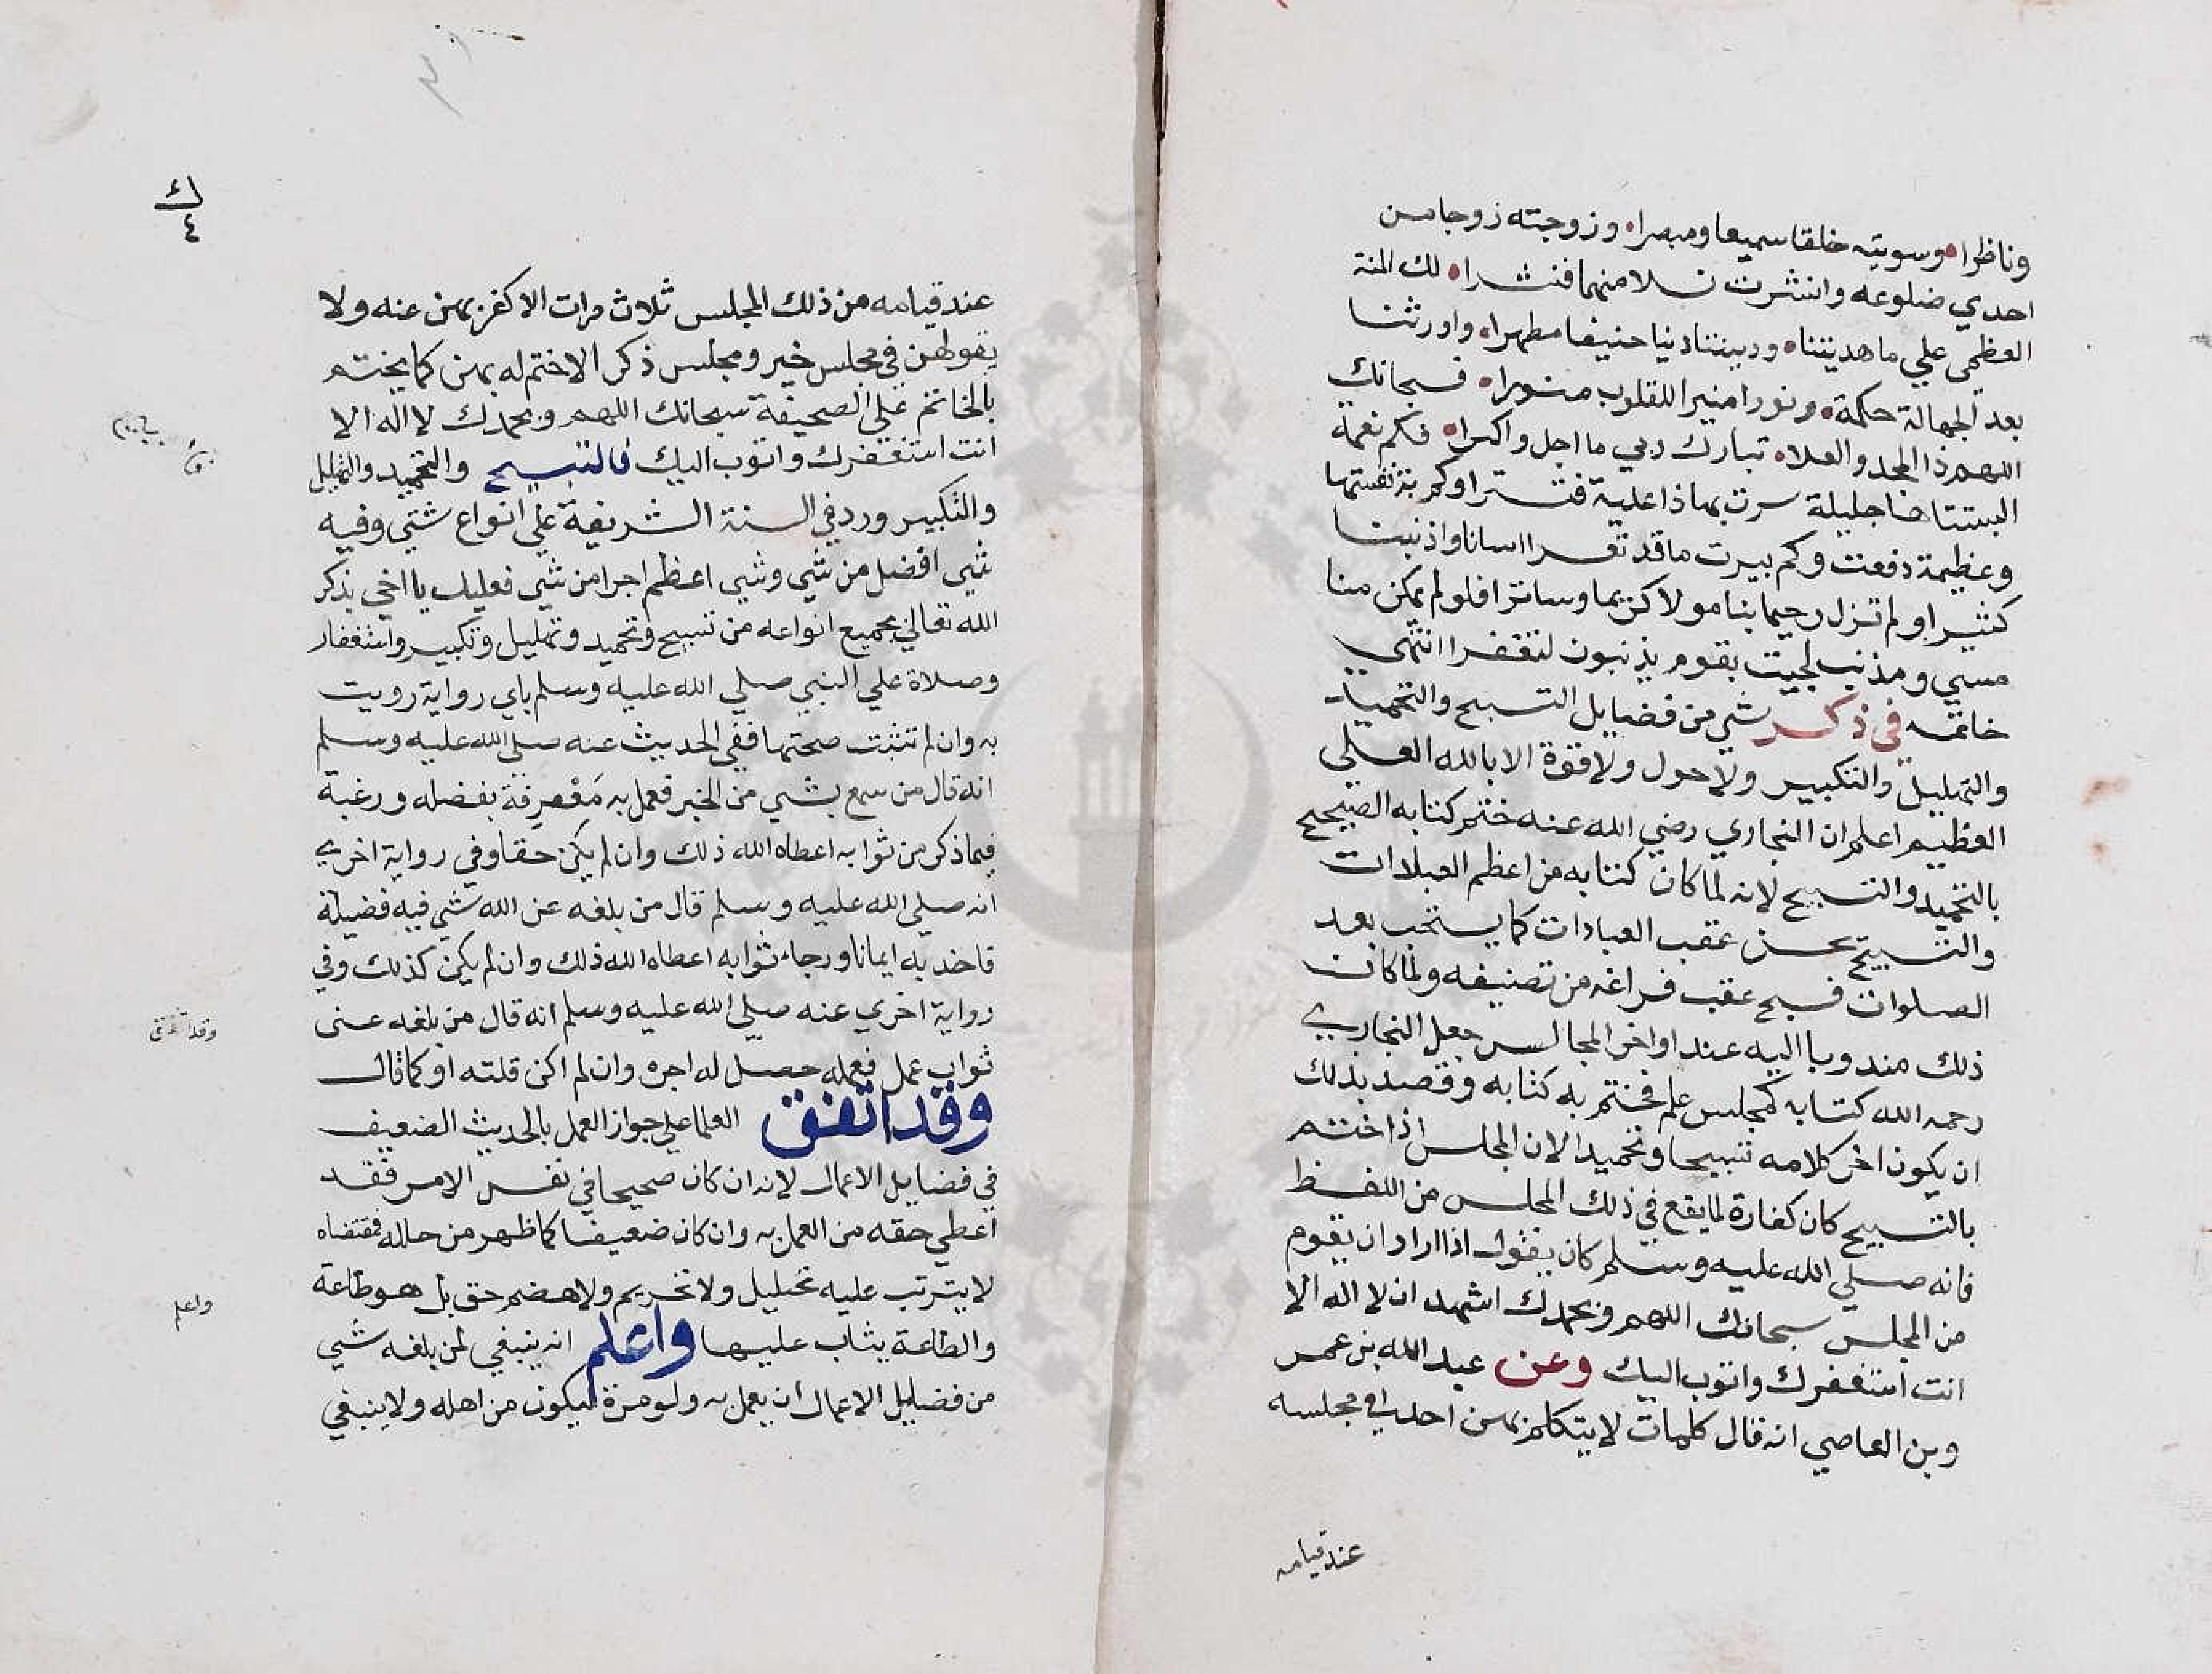 وناظرا ه وسويته خلقا سميعا ومبصرا ه وزوجته زوجا من
احدي ضلوعه وانشرت نسلا منهما فنشرا ه لك المنة
العظمى علي ما هديتنا ه ودينتنا دينا حنيفا مطهرا ه واورثتنا
بعد الجهالة حكمة ه ونورا منيرا للقلوب منورا ه فسبحانك
اللهم ذا المجد والعلا ه تبارك ربي ما اجل واكبرا ه فكم نعمة
البستناها جليلة سرت بها ذا علية فتسترا وكم
وعظيمة دفعت وكم يسرت ما قد تعسرا اسانا واذنبنا
كثيرا ولم تزل رحيما بنا مولا كريما وساترا فلو لم يكن منا
مسي ومذنب لجيت بقوم يذنبون لتغفرا انتهي
خاتمه في ذكر شي من فضايل التسبيح والتحميد
والتهليل والتكبير ولا حول ولا قوة الا بالله العلي
العظيم اعلم ان البخاري رضي الله عنه ختم كتابه الصحيح
بالتحميد والتسبيح لانه لما كان كتابه من اعظم العبادات
والتسبيح يحسن عقب العبادات كما يستحب بعد
الصلوات فسبح عقب فراغه من تصنيفه ولما كان
ذلك مندوبا اليه عند اواخر المجالس جعل البخاري
رحمه الله كتابه كمجلس علم فختم به كتابه وقصد بذلك
ان يكون اخر كلامه تسبيحا وتحميدا لان المجلس اذا ختم
بالتسبيح كان كفارة لما يقع في ذلك المجلس من اللغط
فانه صلي الله عليه وسلم كان يقول اذا اراد ان يقوم
من المجلس سبحانك اللهم وبحمدك اشهد ان لا اله الا
انت استغفرك واتوب اليك وعن عبد الله بن عمر
وبن العاصي انه قال كلمات لا يتكلم بهن احد في مجلسه
عند قيامه
ك
٤
عند قيامه من ذلك المجلس ثلاث مرات الا كفر بهن عنه ولا
يقولهن في مجلس خير ومجلس ذكر الا ختم له بهن كما يختم
بالخاتم علي الصحيفة سبحانك اللهم وبحمدك لا اله الا
انت استغفرك واتوب اليك فالتسبيح والتحميد والتهليل
والتكبير ورد في السنة الشريفة علي انواع شتي وفيه
شي افضل من شي وشي اعظم اجرا من شي فعليك يا اخي بذكر
الله تعالي بجميع انواعه من تسبيح وتحميد وتهليل وتكبير واستغفار
وصلاة علي النبي صلي الله عليه وسلم باي رواية رويت
به وان لم تثبت صحتها ففي الحديث عنه صلي الله عليه وسلم
انه قال من سمع بشي من الخير فعمل به مَعْرِفة بفضله ورغبة
فيما ذكر من ثوابه اعطاه الله ذلك وان لم يكن حقا وفي رواية اخري
انه صلي الله عليه وسلم قال من بلغه عن الله شي فيه فضيلة
فاخذ به ايمانا ورجاء ثوابه اعطاه الله ذلك وان لم يكن كذلك وفي
رواية اخري عنه صلي الله عليه وسلم انه قال من بلغه عني
ثواب عمل فعمله حصل له اجره وان لم اكن قلته او كما قال
وقد اتفق العلما علي جواز العمل بالحديث الضعيف
في فضايل الاعمال لانه ان كان صحيحا في نفس الامر فقد
اعطي حقه من العمل به وان كان ضعيفا كما ظهر من حاله فمقتضاه
لا يترتب عليه تحليل ولا تحريم ولا هضم حق بل هو طاعة
والطاعة يثاب عليها واعلم انه ينبغي لمن بلغه شي
من فضايل الاعمال ان يعمل به ولو مرة ليكون من اهله ولا ينبغي
وقد اتفق
واعلم